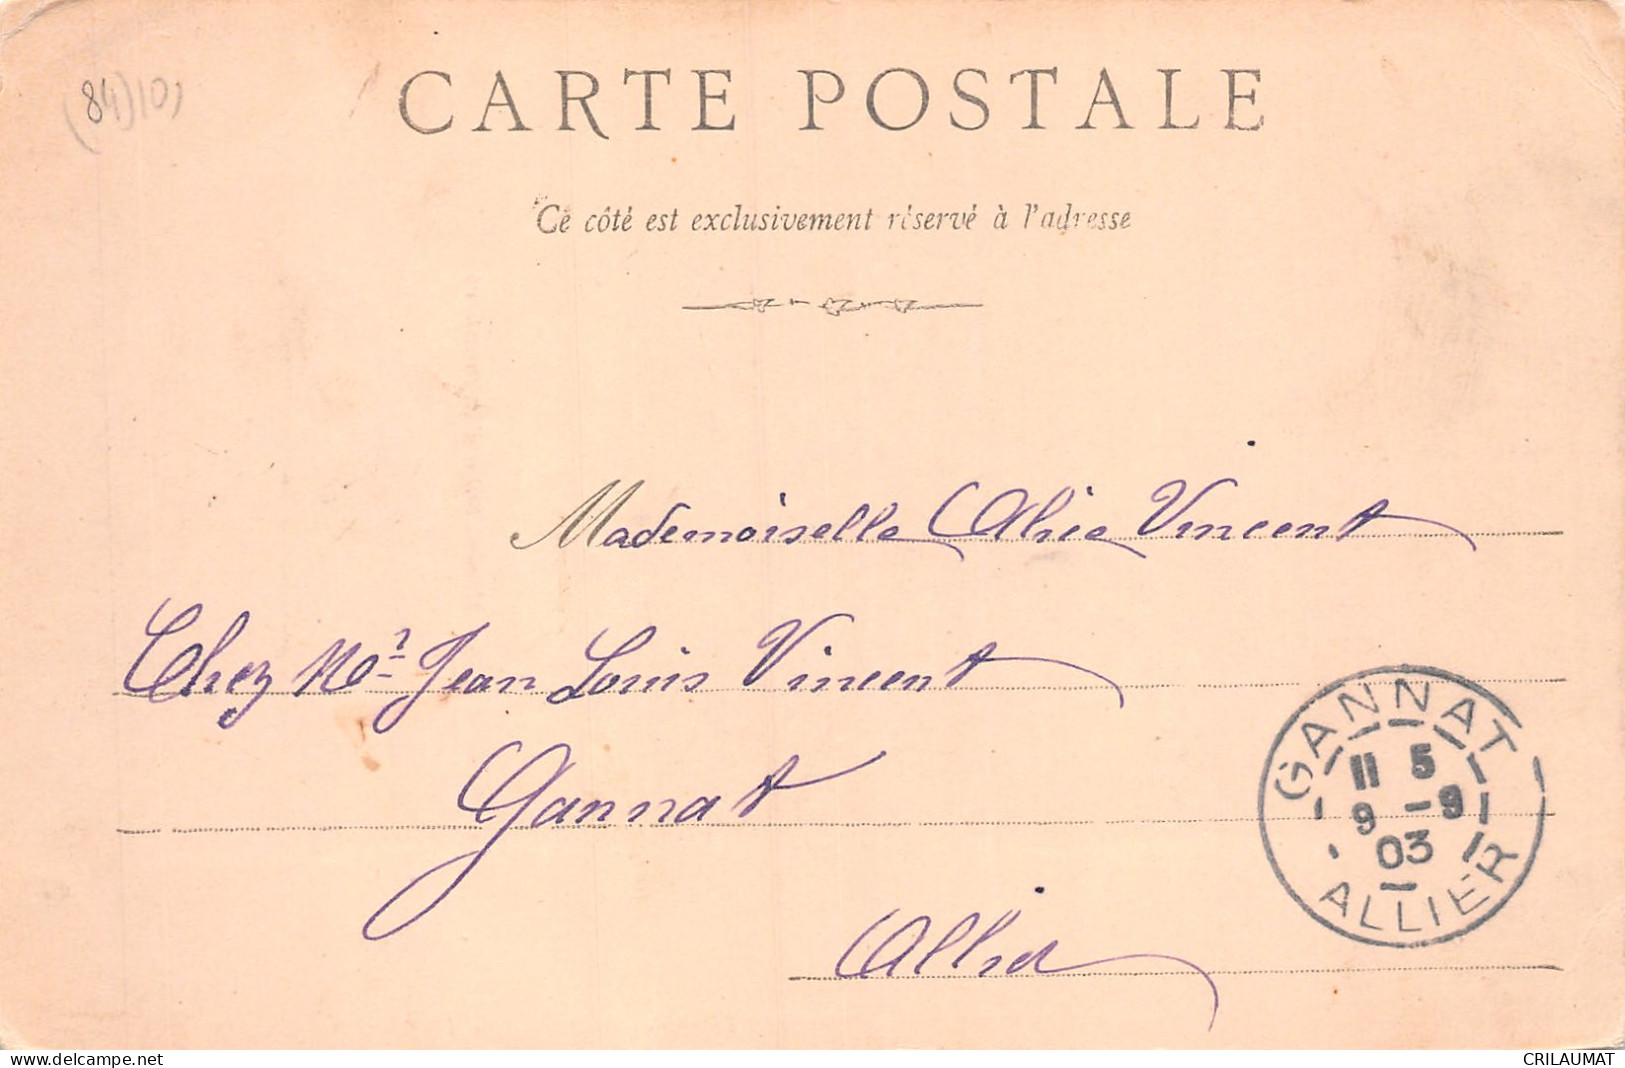 (84) 10,
CARTE POSTALE
Ce côté est exclusivement réservé à l'adresse
Mademoiselle Alice Vincent
Chez Mr Jean Louis Vincent
Gannat
Allier
GANNAT
11 5
9 -9
03
ALLIER
delcampe.net
CRILAUMAT